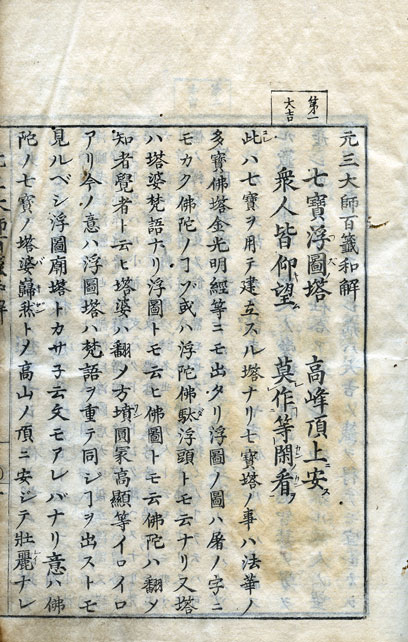 第一
大吉
元三大師百籤和解
七寶浮圖塔　高峰頂上安
衆人皆仰望　莫作等閑看
此ハ七寶ヲ用テ建立スル塔ナリ七寶塔ノ事ハ法華ノ
多寶佛塔金光明經等ニモ出タリ浮圖ノ圖ハ屠ノ字ニ
モカク佛陀ノヿヲ或ハ浮陀佛馱浮頭トモ云ナリ又塔
ハ塔婆梵語ナリ浮圖トモ云ヒ佛圖トモ云佛陀ハ翻メ
知者覺者ト云ヒ塔婆ハ翻ノ方墳圓冢高顯等イロイロ
アリ今ノ意ハ浮圖塔ハ梵語ヲ重テ同シヿヲ出ストモ
見ルベシ浮圖廟塔トカサ子云文モアレバナリ意ハ佛
陀ノ七寶ノ塔婆巋然トメ高山ノ頂ニ安ジテ壯麗ナレ